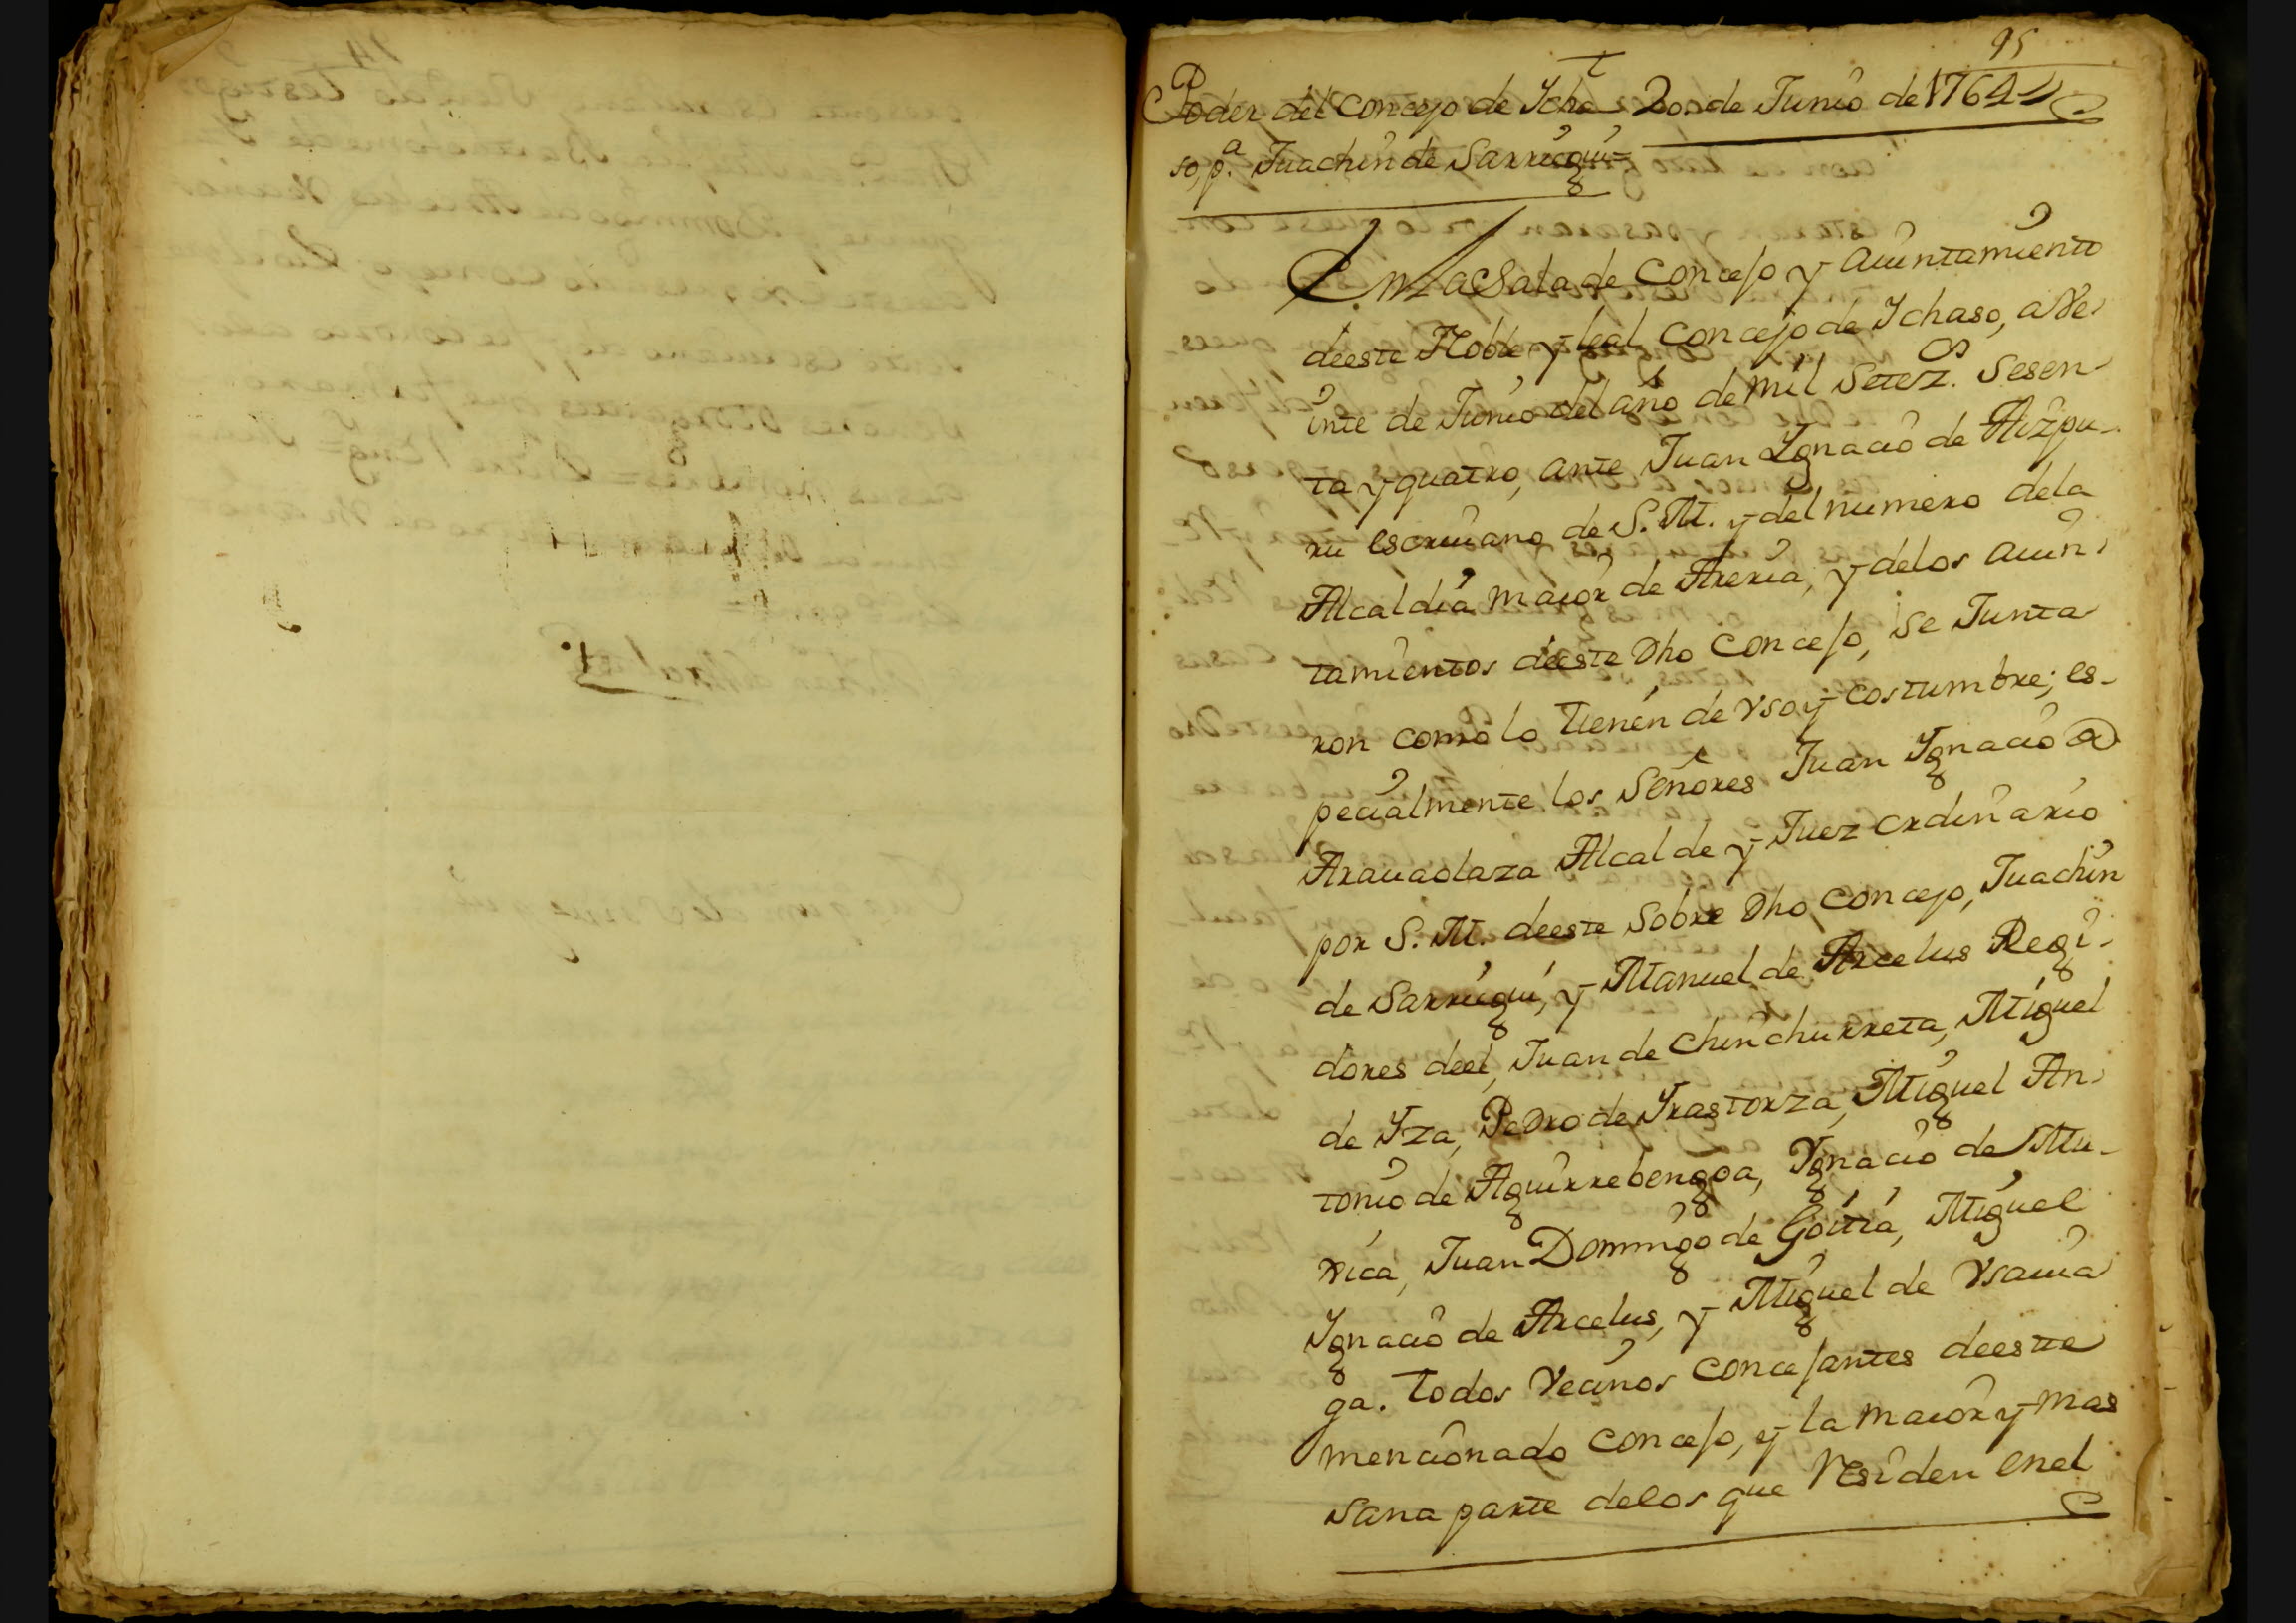 95
Poder del Concejo de Ycha 20 de Junio de 1764
so, p.a Juachin de Sarriegui=
En La Sala de Concejo y aiuntamiento
deeste Noble y leal Concejo de Ychaso, a Ve-
inte de Junio del año de mil Setez.os Sesen-
ta y quatro, ante Juan Ygnacio de Aizpu-
ru escriuano de S. M. y del numero dela
Alcaldia maior de Areria, y delos aiun-
tamientos deeste Dho Concejo, Se Junta
ron como lo tienen de Vso y costumbre; es-
pecialmente los Señores Juan Ygnacio de
Arauaolaza Alcalde y Juez ordinario
por S. M. deeste Sobre Dho Concejo, Juachin
de Sarriegui, y Manuel de Arcelus Regi-
dores deel, Juan de Chinchurreta, Miguel
de Yza, Pedro de Yrastorza, Miguel An-
tonio de Aguirrebengoa, Ygnacio de Mu-
xica, Juan Domingo de Goitia, Miguel
Ygnacio de Arcelus, y Miguel de Vsauia
ga. todos Vecinos Concejantes deeste
mencionado Concejo, y la maior y mas
Sana parte delos que Residen enel